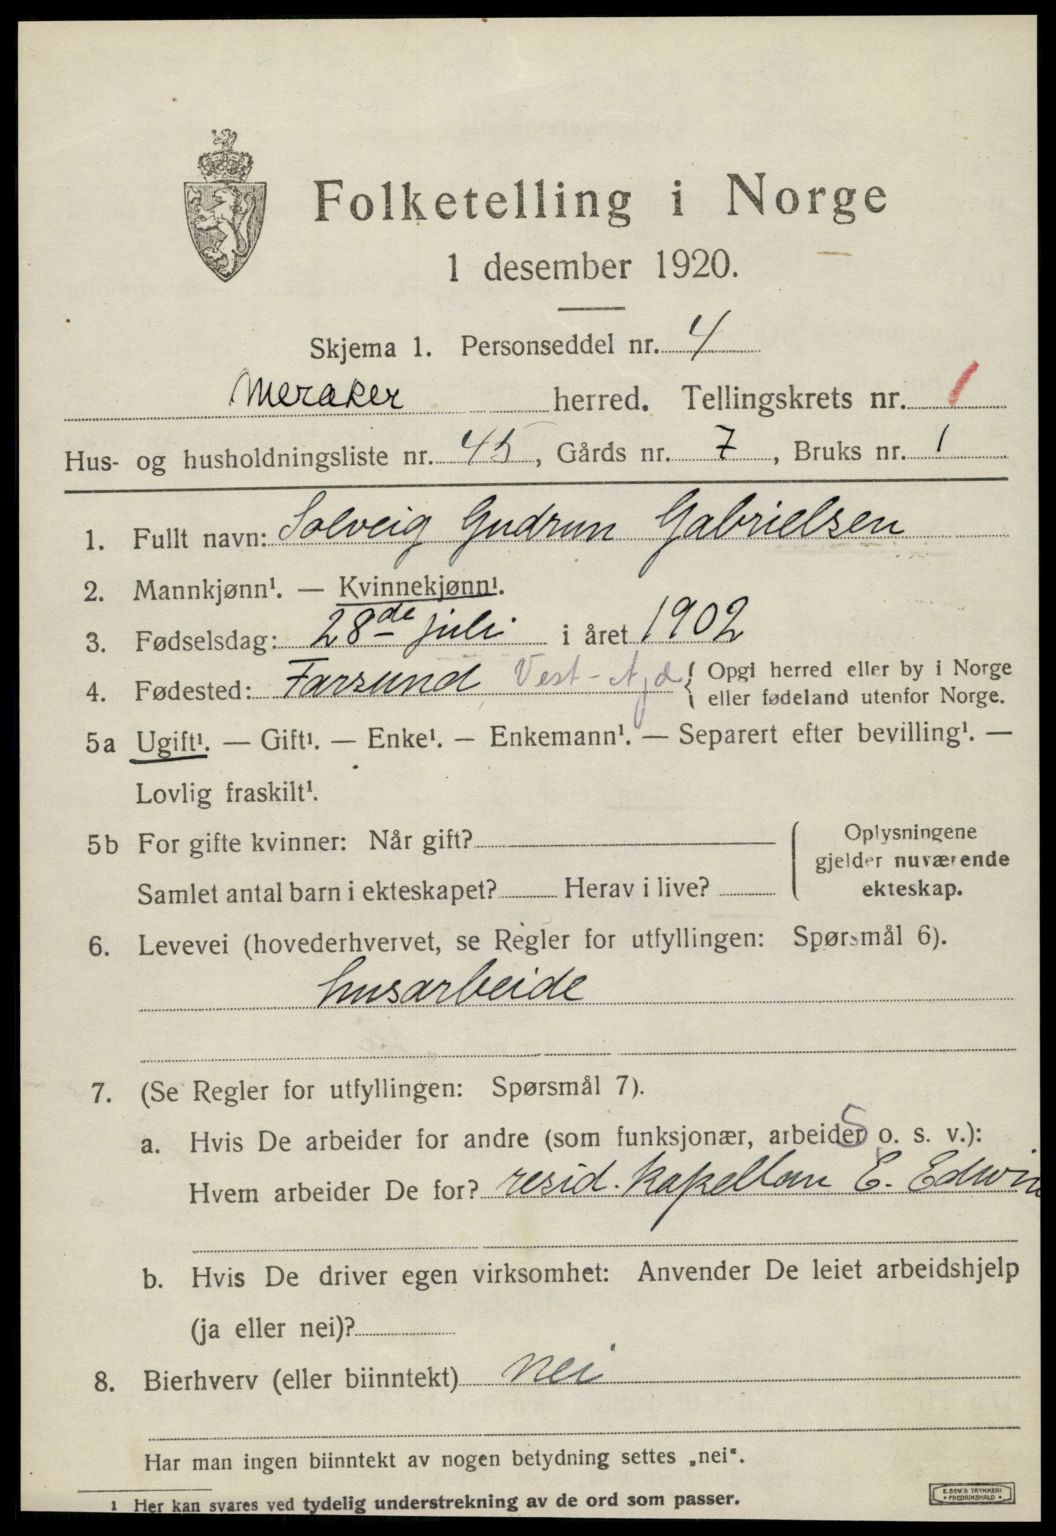 Folketelling i Norge
1 desember 1920.
Skjema 1. Personseddel nr. 4
Meraker herred. Tellingskrets nr. 1
Hus- og husholdningsliste nr. 45, Gårds nr. 7, Bruks nr. 1
1. Fullt navn: Solveig Gudrun Gabrielsen
2. Mannkjønn¹. — Kvinnekjønn¹.
3. Fødselsdag: 28de juli i året 1902
4. Fødested: Farsund Vest-Agd { Opgi herred eller by i Norge
eller fødeland utenfor Norge.
5a Ugift¹. — Gift¹. — Enke¹. — Enkemann¹. — Separert efter bevilling¹. —
Lovlig fraskilt¹.
5b For gifte kvinner: Når gift?
Samlet antal barn i ekteskapet? Herav i live?
Oplysningene
gjelder nuværende
ekteskap.
6. Levevei (hovederhvervet, se Regler for utfyllingen: Spørsmål 6).
husarbeide
7. (Se Regler for utfyllingen: Spørsmål 7).
a. Hvis De arbeider for andre (som funksjonær, arbeider o. s. v.):
Hvem arbeider De for? resid. kapellan E. Edwin
b. Hvis De driver egen virksomhet: Anvender De leiet arbeidshjelp
(ja eller nei)?
8. Bierhverv (eller biinntekt) nei
Har man ingen biinntekt av nogen betydning settes „nei“.
1 Her kan svares ved tydelig understrekning av de ord som passer.
E. SEM'S TRYKKERI
FREDRIKSHALD